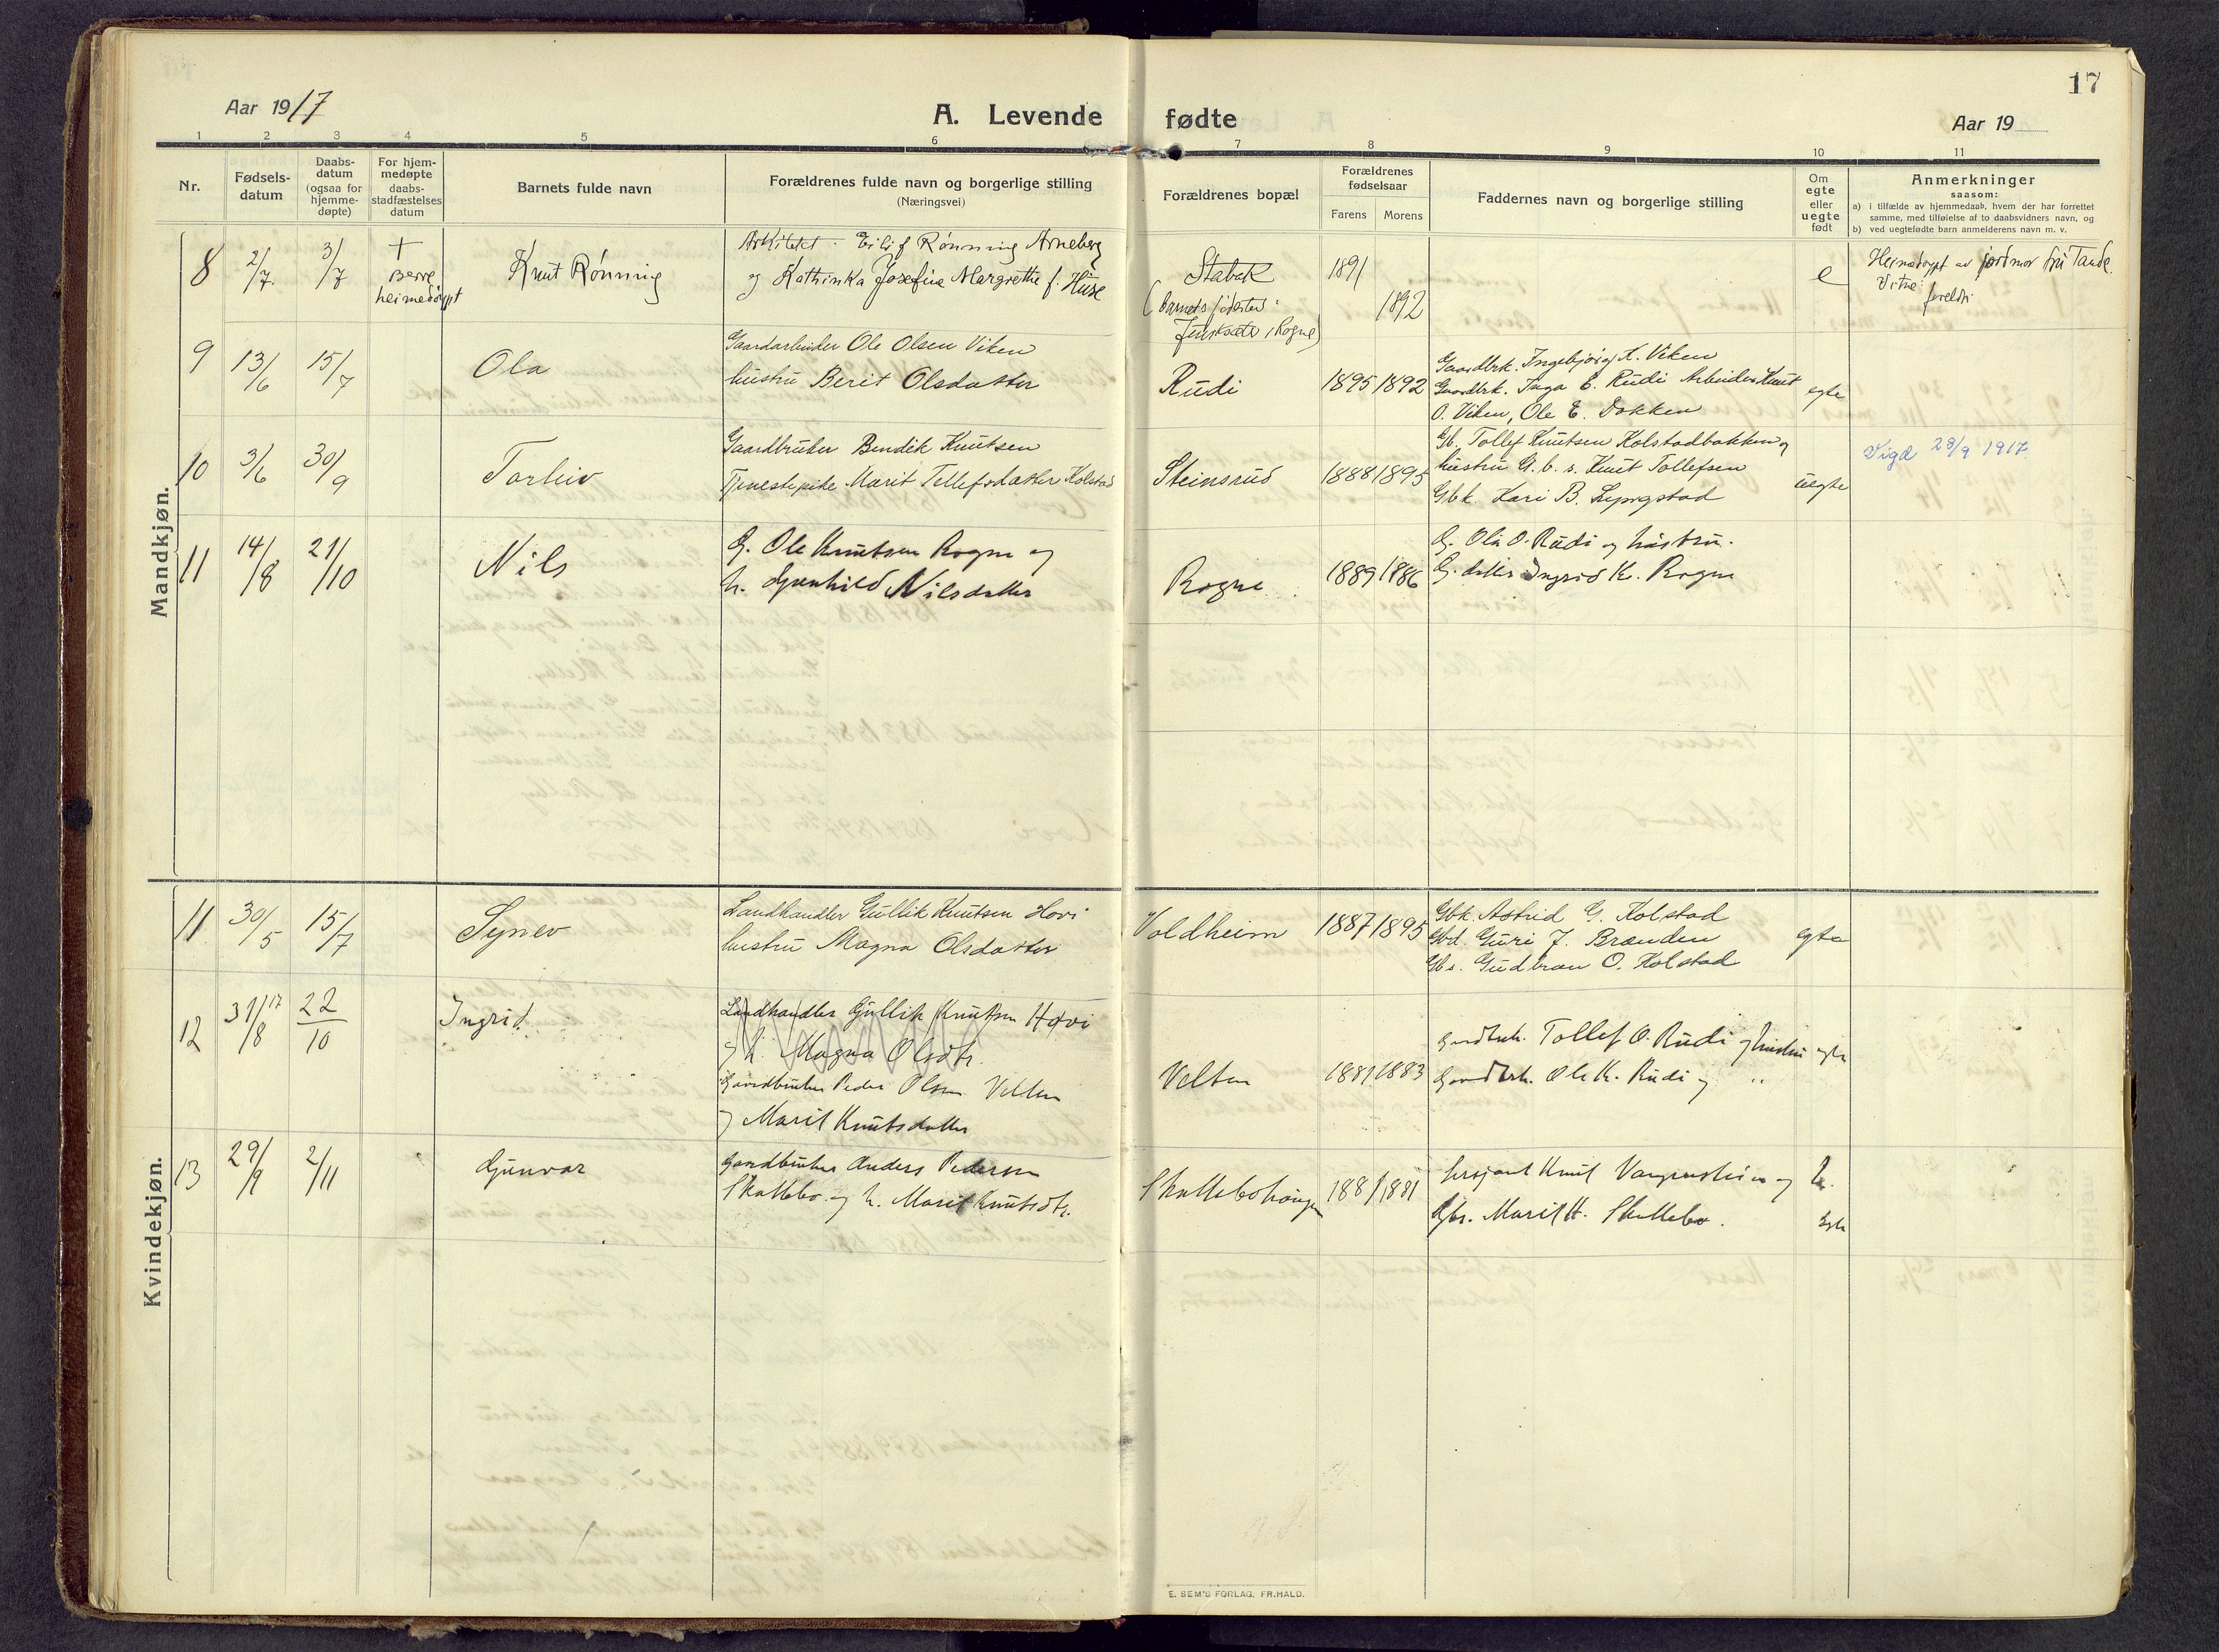 17
Aar 1917
A. Levende fødte
Aar 19
1 2 3 4 5 6 7 8 9 10 11
Nr.
Fødsels-
datum
Daabs-
datum
(ogsaa for
hjemme-
døpte)
For hjem-
medøpte
daabs-
stadfæstelses
datum
Barnets fulde navn
Forældrenes fulde navn og borgerlige stilling
(Næringsvei)
Forældrenes bopæl
Forældrenes
fødselsaar
Farens Morens
Faddernes navn og borgerlige stilling
Om
egte
eller
uegte
født
Anmerkninger
saasom:
a) i tilfælde av hjemmedaab, hvem der har forrettet
samme, med tilføielse af to daabsvidners navn, og
b) ved uegtefødte barn anmelderens navn m. v.
Mandkjøn.
8 2/7. 3/7 +
Berre
heimedøypt
Knut Rønning
Arkitekt Eilif Rønning Arneberg
og Kathinka Josefine Margrethe f. Huse
Stabæk
(barnets fødested:
i Rogne)
1891
1892
e
Heimedøypt av jordmor fru Tande.
Vitne:
foreldri
9 13/6 15/7
Ola
Gaardarbeider Ole Olsen Viken
hustru Berit Olsdatter
Rudi
1895 1892
Gaardbrk. Ingebjørg K. Viken
Gaardbrk. Inga E. Rudi Arbeider Knut
O. Viken, Ole E. Dokken
egte
10 3/6 30/9
Torleiv
Gaardbruker Bendik Knutsen
Tjenestepike Marit Tollefsdatter Kolstad
Steinsrud
1888 1895
Gb. Tollef Knutsen Kolstadbakken og
hustru G. b. s. Knut Tollefsen
Gbk. Kari B.
uegte
Vigd 28/9 1917
11 14/8 21/10
Nils
G. Ole Knutsen Rogne og
h. Gunhild Nilsdatter
Rogne
1889 1886
G. Ola O. Rudi og hustru.
G. datter Ingrid K. Rogne
Kvindekjøn.
11 30/5 15/7
Synev
Landhandler Gullik Knutsen Hovi
hustru Magna Olsdatter
Voldheim
1887 1895
Gbk. Astrid G. Kolstad
Gbd. Guri J. Brænden
Gbs. Gudbran O. Kolstad
egte
12 31/8 17 22/10
Ingrid.
Landhandler Gullik Knutsen Hovi
og h. Magna Olsdtr.
Gaardbruker Peder Olsen Velten
og Marit Knutsdatter
Velten
1881 1883
Gaardbrk. Tollef O. Rudi og hustru
Gaardbrk. Ole K. Rudi og "
egte
13 29/9 2/11
Gunvor
Gaardbruker Anders Pedersen
Skattebo og h. Marit Knutsdtr.
Skattebohaugen
1881 1881
Sersjant Knut og
Gbr. Marit H. Skattebo.
egte
E. SEM'S FORLAG. FR.HALD.